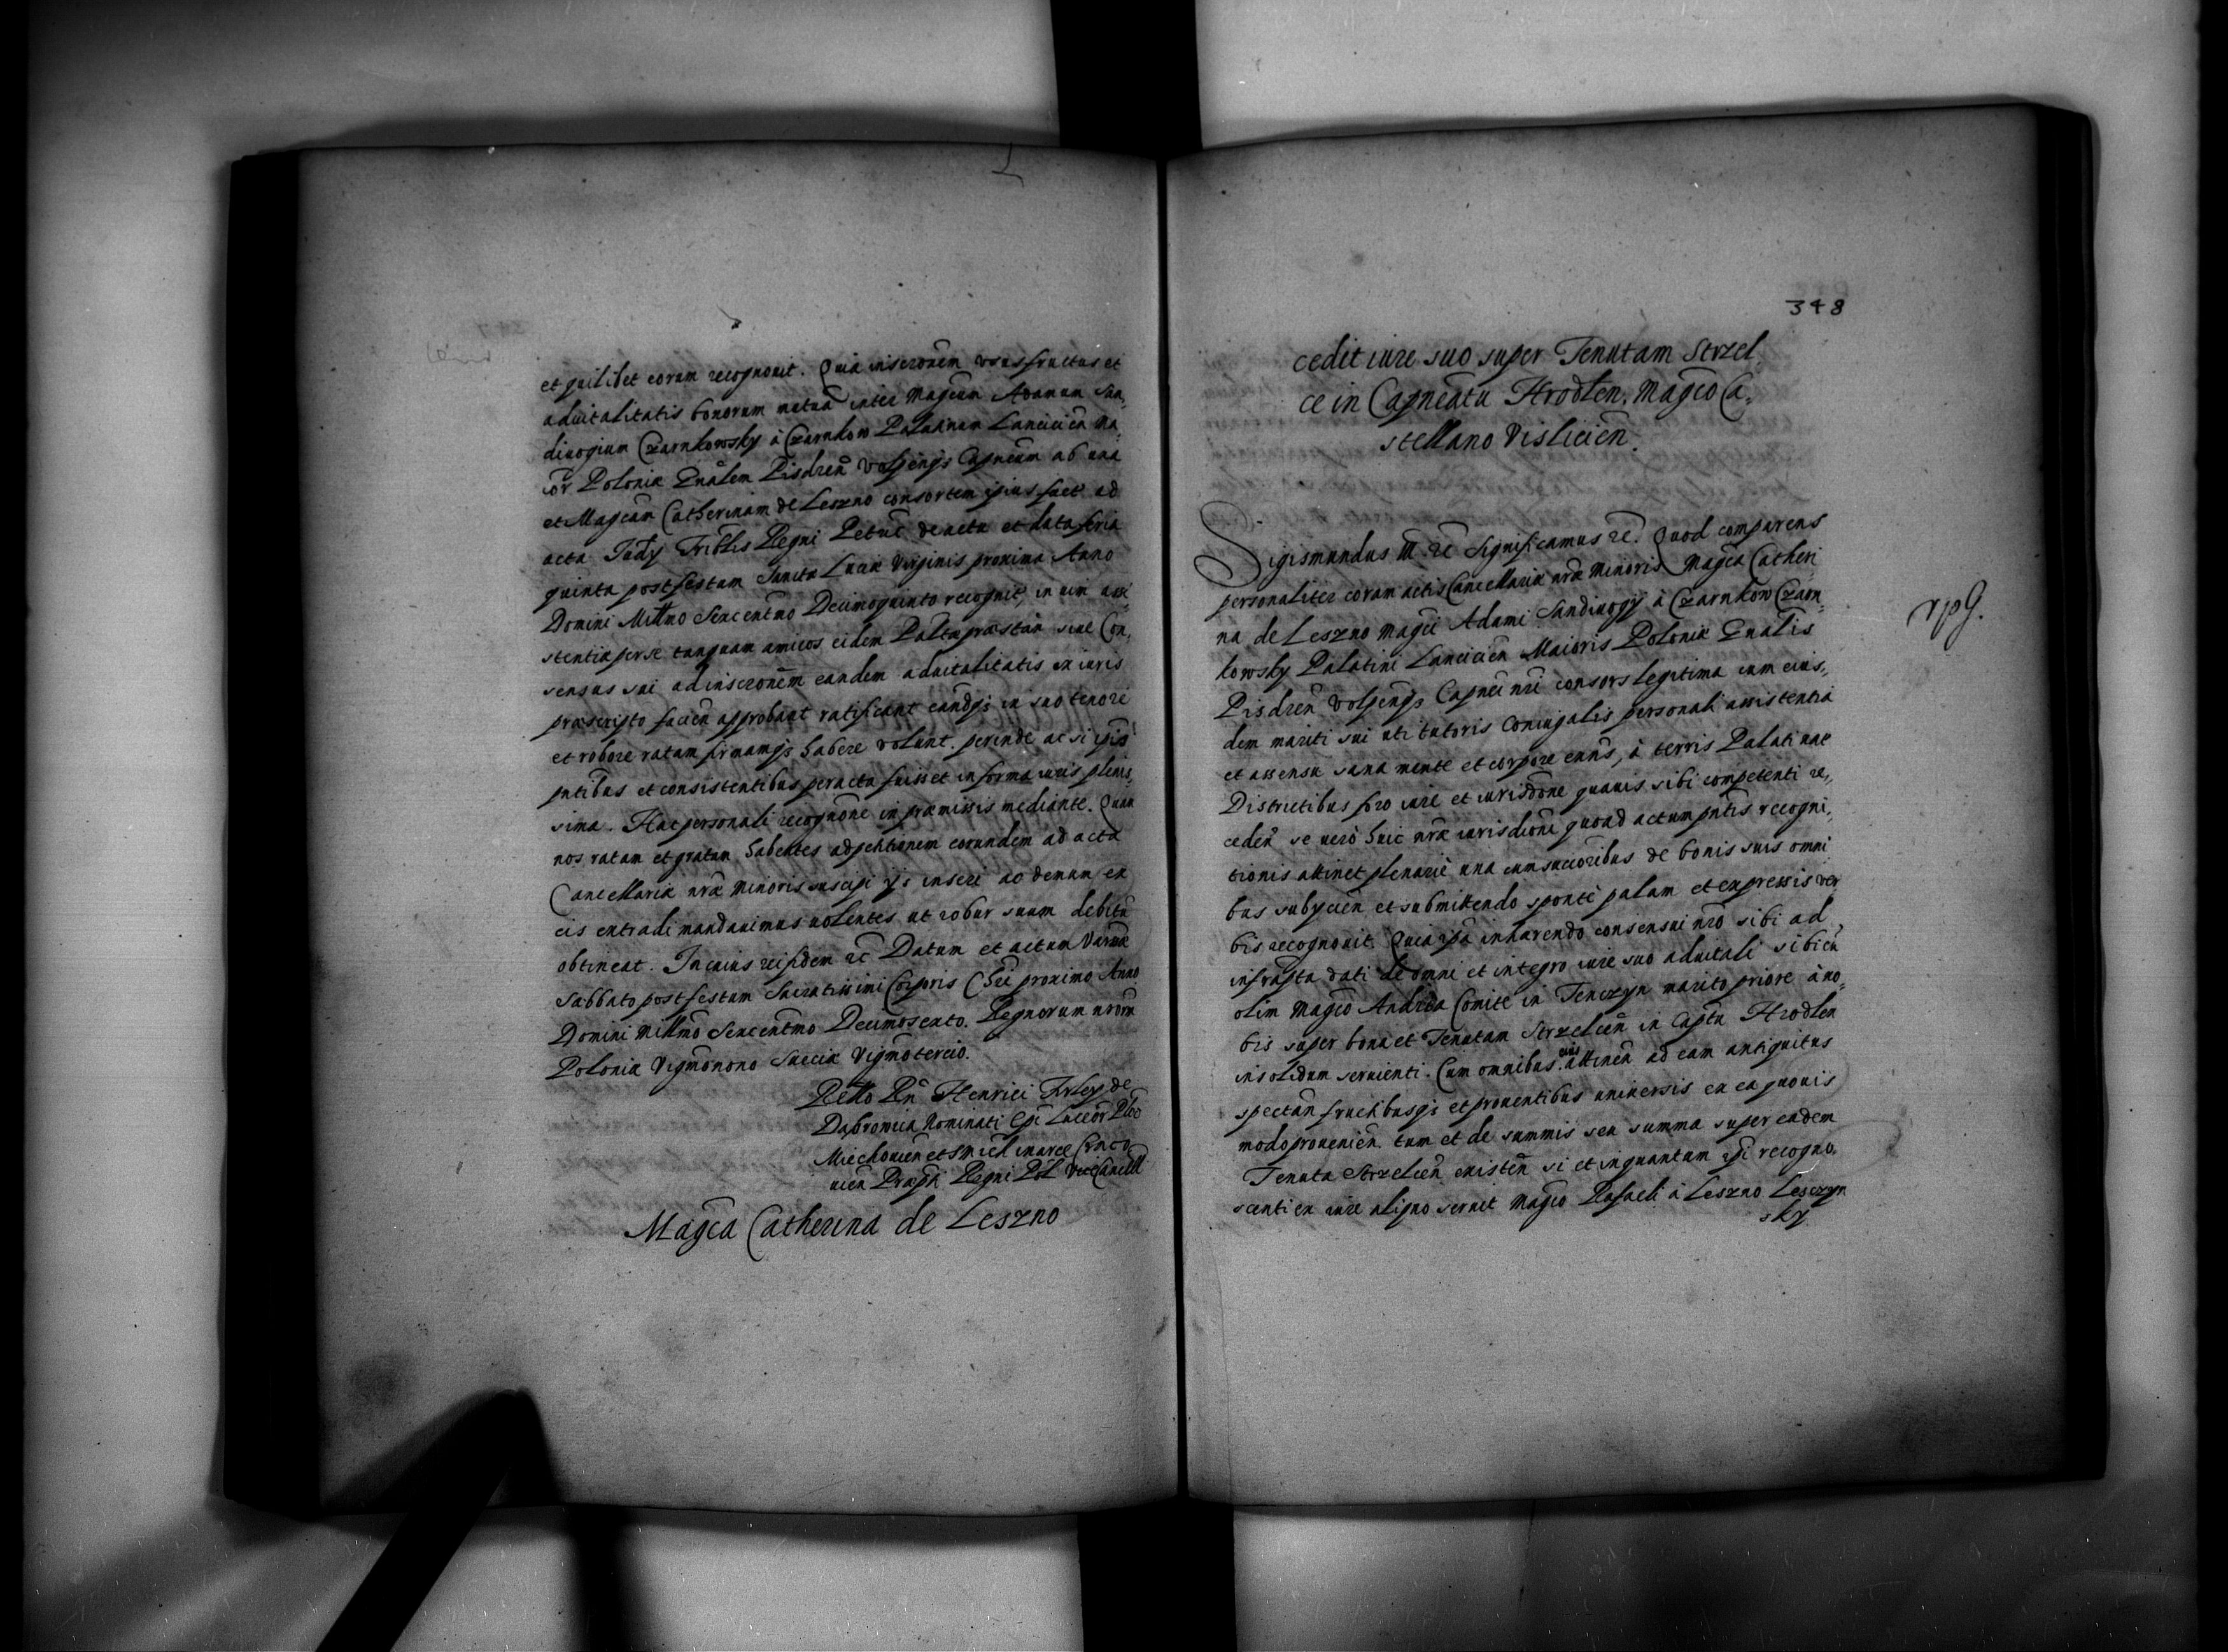 et quilibet eorum recognouit. Quia inscronem vsusfructus et
aduitalitatis bonorum mutuā inter Magcum Adamum San,
diuogium Czarnkowsky à Czarnkow Palatinum Lancicien Ma,
ior Poloniæ Gnãlem Pisdren̄ Volpensqꝫ Capneum ab una
et Magcam Catherinam de Leszno consortem ipius fact ad
acta Judÿ Triblis Regni Petric̄ de actu et data feria
quinta post festum Sanctæ Luciæ Virginis proxima Anno
Domini Millmo Sexcentmo Decimoquinto recognit, in uim assi
stentiæ per se tanquam amicos eidem Palta præstan siue Con,
sensus sui ad inscronem eandem aduitalitatis ex iuris
præscripto facien approbant ratificant eandqꝫ in suo tenore
et robore ratam firmamqꝫ habere volunt. perinde ac si ipis
pntibus et consistentibus peracta fuisset in forma iuris plenis,
sima. Hac personali recognone in præmissis mediante. Quam
nos ratam et gratam habentes ad petitionem eorundem ad acta
Cancellariæ nræ Minoris suscipi ijs inseri ac demum ex
eis extradi mandauimus uolentes ut robur suum debitū
obtineat. In cuius rei fidem ꝛc Datum et actum Varsaꝫ
Sabbato post festum Sacratissimi Corporis Chri proximo Anno
Domini Millmo Sexcentmo Decimosexto. Regnorum nrorū
Poloniæ Vigmonono Sueciæ Vigmotercio.
Rello Rn̄ Henrici Firley de
Dabrowica Nominati Epi Luceor
Miechouien et
uien Præpti Regni Pol Vicecancell
Magca Catherina de Leszno
348
cedit iure suo super Tenutam Strzel,
ce in Capneatu Hrodlen. Magco Ca,
stellano Vislicien.
Sigismundus III. ꝛc Significamus ꝛc. Quod comparens
personaliter coram actis Cancellariæ nræ Minoris Magca Catheri
na de Leszno Magci Adami Sandiuogÿ à Czarnkow Czarn,
kowsky Palatini Lancicien Maioris Poloniæ Gnãlis
Pisdren Volpensqꝫ Capnei nri consors legitima cum eius,
dem mariti sui uti tutoris Coniugalis personali assistentia
et assensu sana mente et corpore exns, à terris Palatinae
Districtibus foro iure et iurisdone quauis sibi competenti re,
ceden̄ se uerò huic nræ iurisdioni quoad actum pntis recogni,
tionis attinet plenariè una cum succoribus de bonis suis omni
bus subycien et submittendo spontè palam et expressis ver
bis recognouit. Quia ipa inhærendo consensui nro sibi ad
infrapta dati de omni et integro iure suo aduitali sibi cū
olim Magco Andrea Comite in Tenczyn marito priore à no,
bis super bona et Tenutam Strzelcen̄ in Captu Hrodlen
insolidum seruienti. Cum omnibus eius attinen̄ ad eam antiquitus
spectan fructibusqꝫ et prouentibus uniuersis ex ea quouis
modo prouenien̄. tum et de summis seu summa super eadem
Tenuta Strzelcen̄ existen̄ si et inquantum ipi recogno,
scenti ex iure aliquo seruit Magco Rafaeli à Leszno Lesczyn
sky